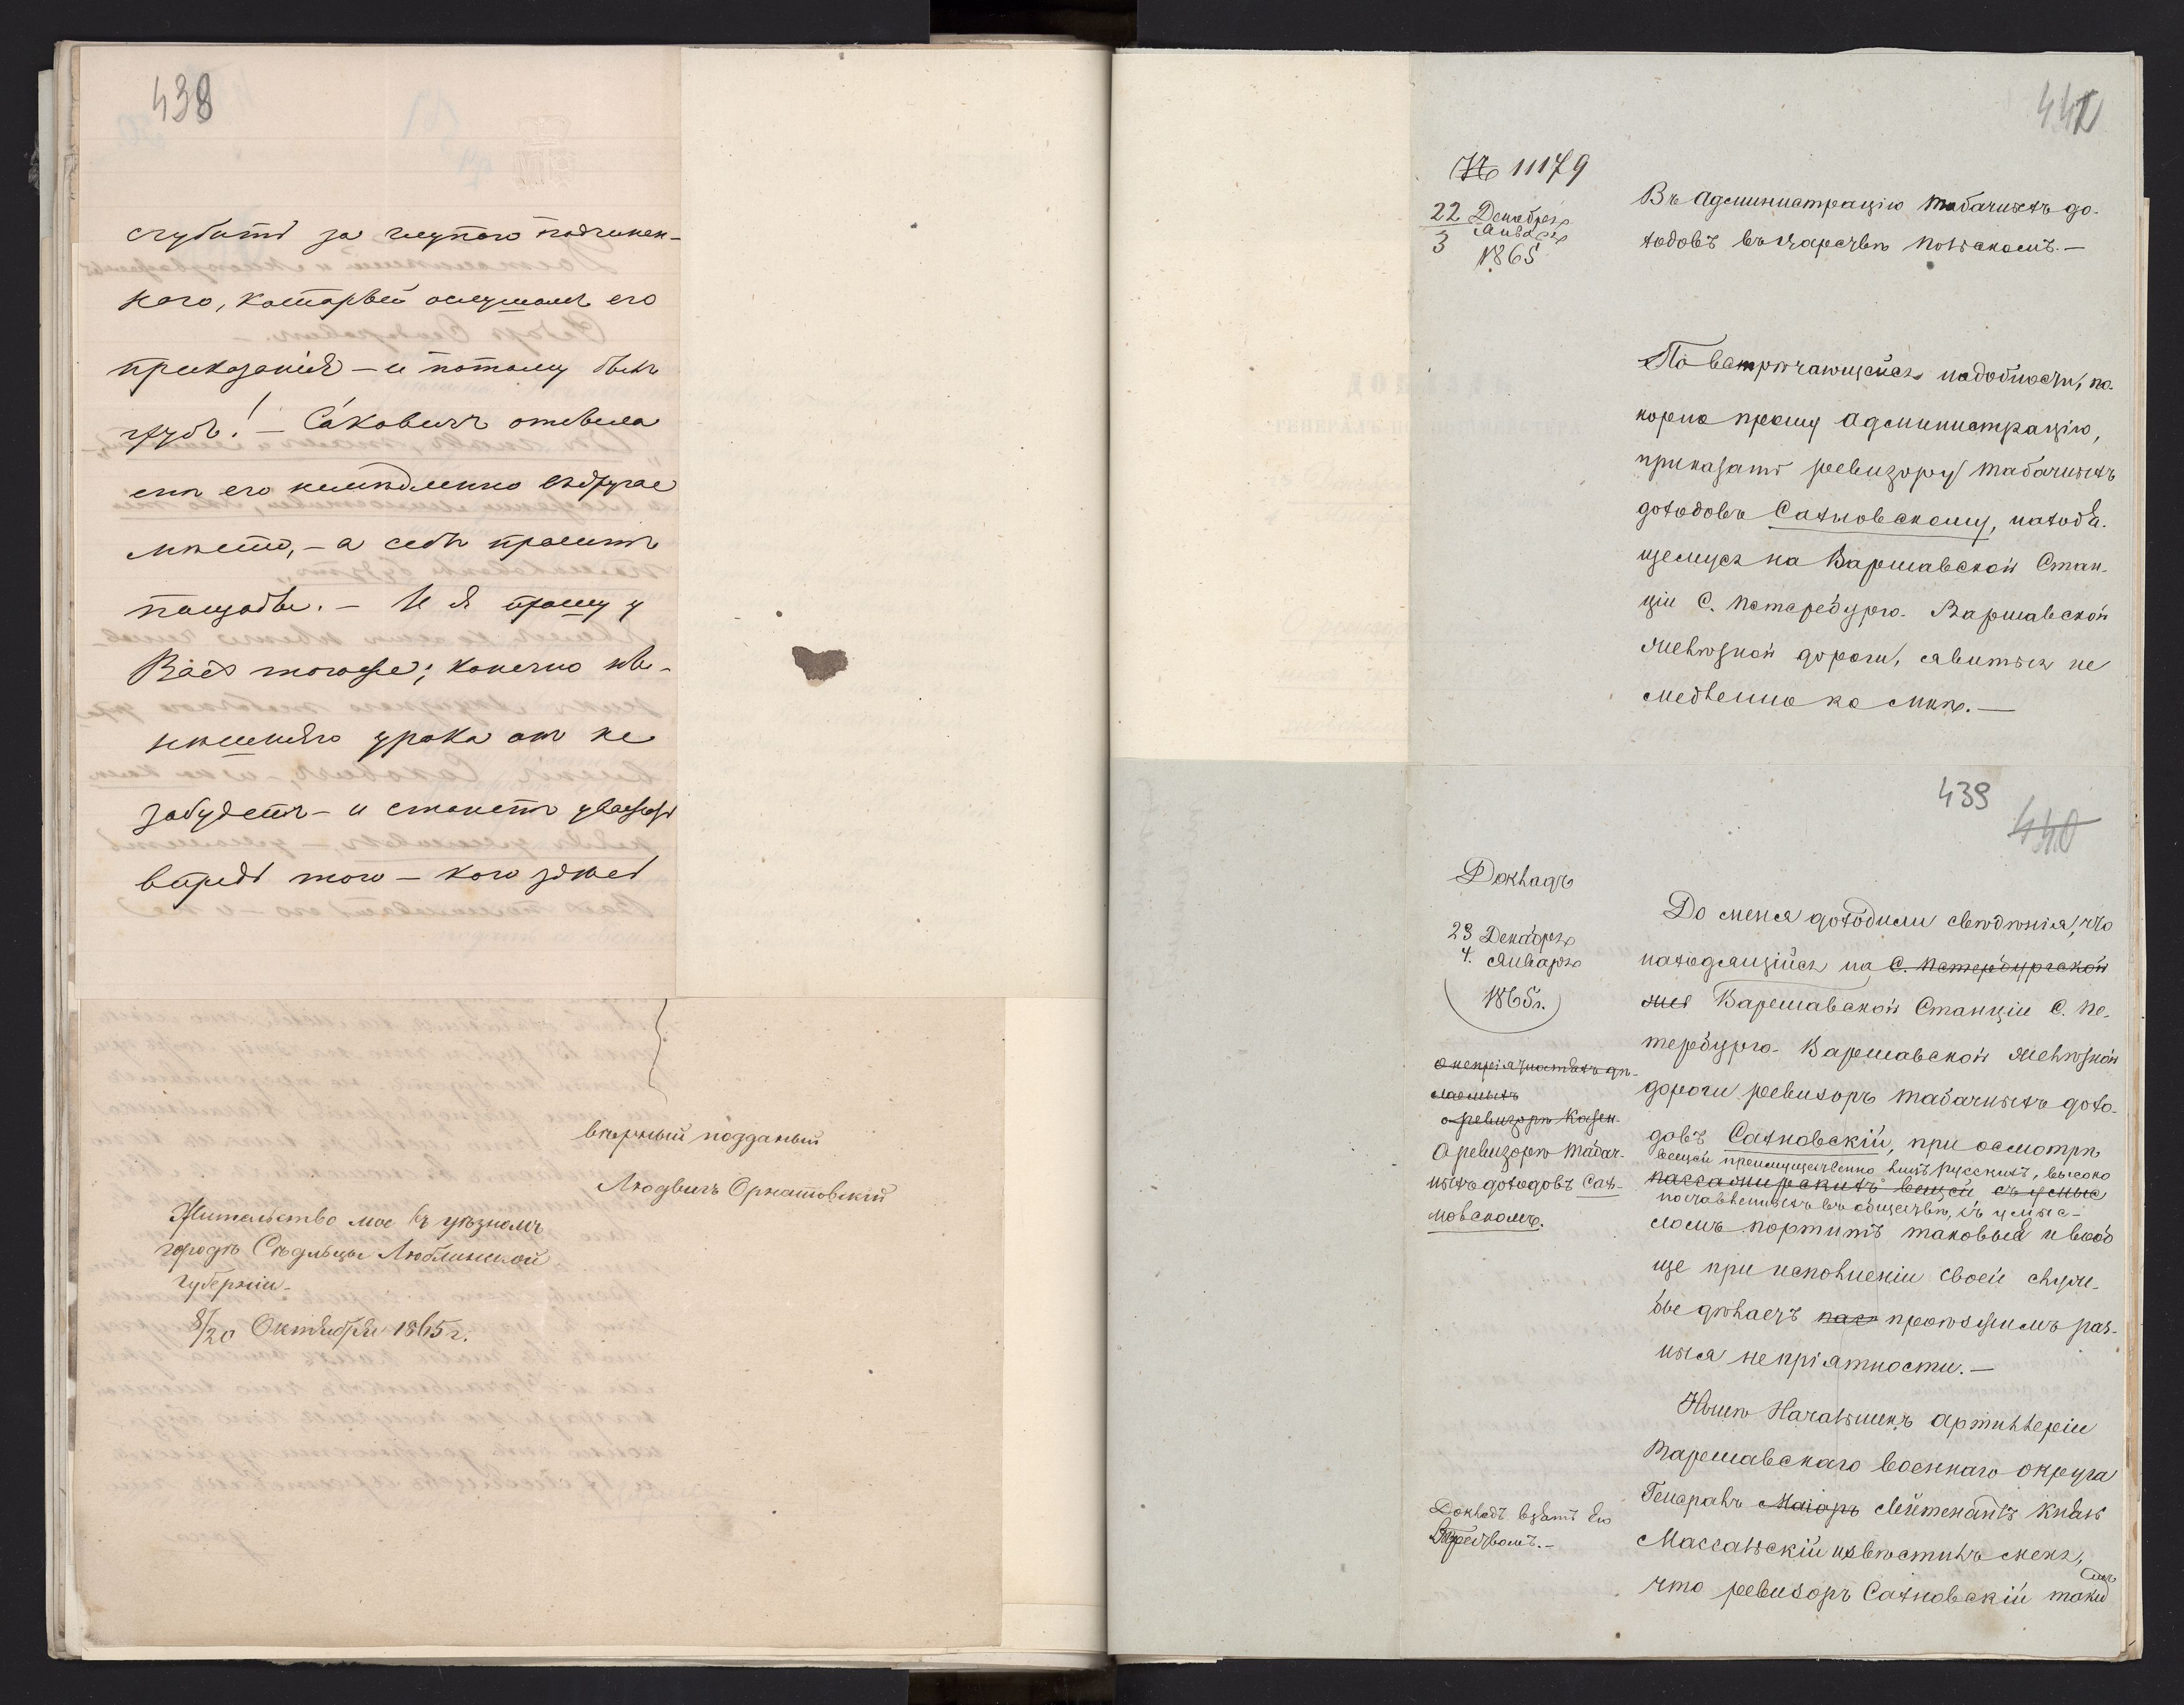 438
сгубить за глупаго подчинен-
наго, который ослушался его
приказанія – и потому былъ
грубъ! – Саковичъ отвела
ему его немедленно въ другое
мѣсто, – а себѣ проситъ
пощады. – И я прошу у
Васъ тогоже; конечно ны-
нѣшняго урока он не
забудетъ – и станетъ уважать
впредь того – кого
вѣрный подданый
Людвигъ Орнатовскій
Жительство мое въ уѣзномъ
городѣ Сѣдльцы Люблинской
губерніи.
8/20 Октября 1865 г.
441
№ 11179
22 Декабря
3 Января
1865
Въ Администрацію табачныхъ до-
ходовъ въ Царствѣ Польскомъ. –
По встрѣчающейся надобности, по-
корно прошу Администрацію,
приказать ревизору табачныхъ
доходовъ Сахновскому, находя-
щемуся на Варшавской Стан-
ціи С. Петербурго-Варшавской
желѣзной дороги, явиться не
медленно ко мнѣ. –
439
440
Докладъ
23 Декабря
4. Января
1865 г.
о непріятностяхъ дѣ-
лаемыхъ
о ревизорѣ Казен-
О ревизорѣ табач-
ныхъ доходовъ Сах-
новскомъ.
До меня доходили свѣдѣнія, что
находящійся на С. Петербургской
жел Варшавской Станціи С. Пе-
тербурго-Варшавской желѣзной
дороги ревизоръ табачныхъ дохо-
довъ Сахновскій, при осмотрѣ
вещей преимущественно лицъ русскихъ, высоко
пассажирскихъ вещей, съ умыс
поставленныхъ въ обществѣ, съ умыс-
ломъ портитъ таковыя и вооб
ще при исполненіи своей служ-
бы дѣлаетъ пас проѣзжимъ раз-
ныя непріятности. –
Нынѣ Начальникъ Артиллеріи
Варшавскаго военнаго округа
Генералъ Маіоръ Лейтенантъ Князь
Массальскій извѣстилъ меня,
что ревизоръ Сахновскій таки
Докладъ взятъ Его